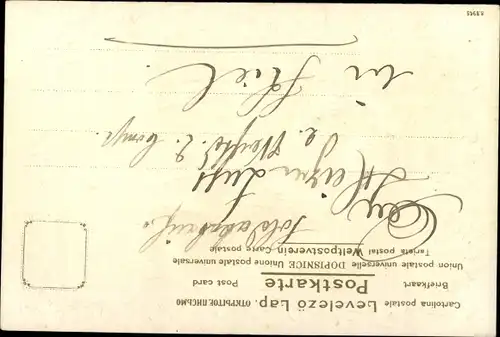 Cartolina postale Levelező Lap. ОТКРЫТОЕ ПИСЬМО
Briefkaart Postkarte Post card
Union postale universelle DOPISNICE Unione postale universale
Tarjeta postal Weltpostverein Carte postale
Soldatenbrief.
Herrn
Heizer Luft
2. Comp.
in Kiel.